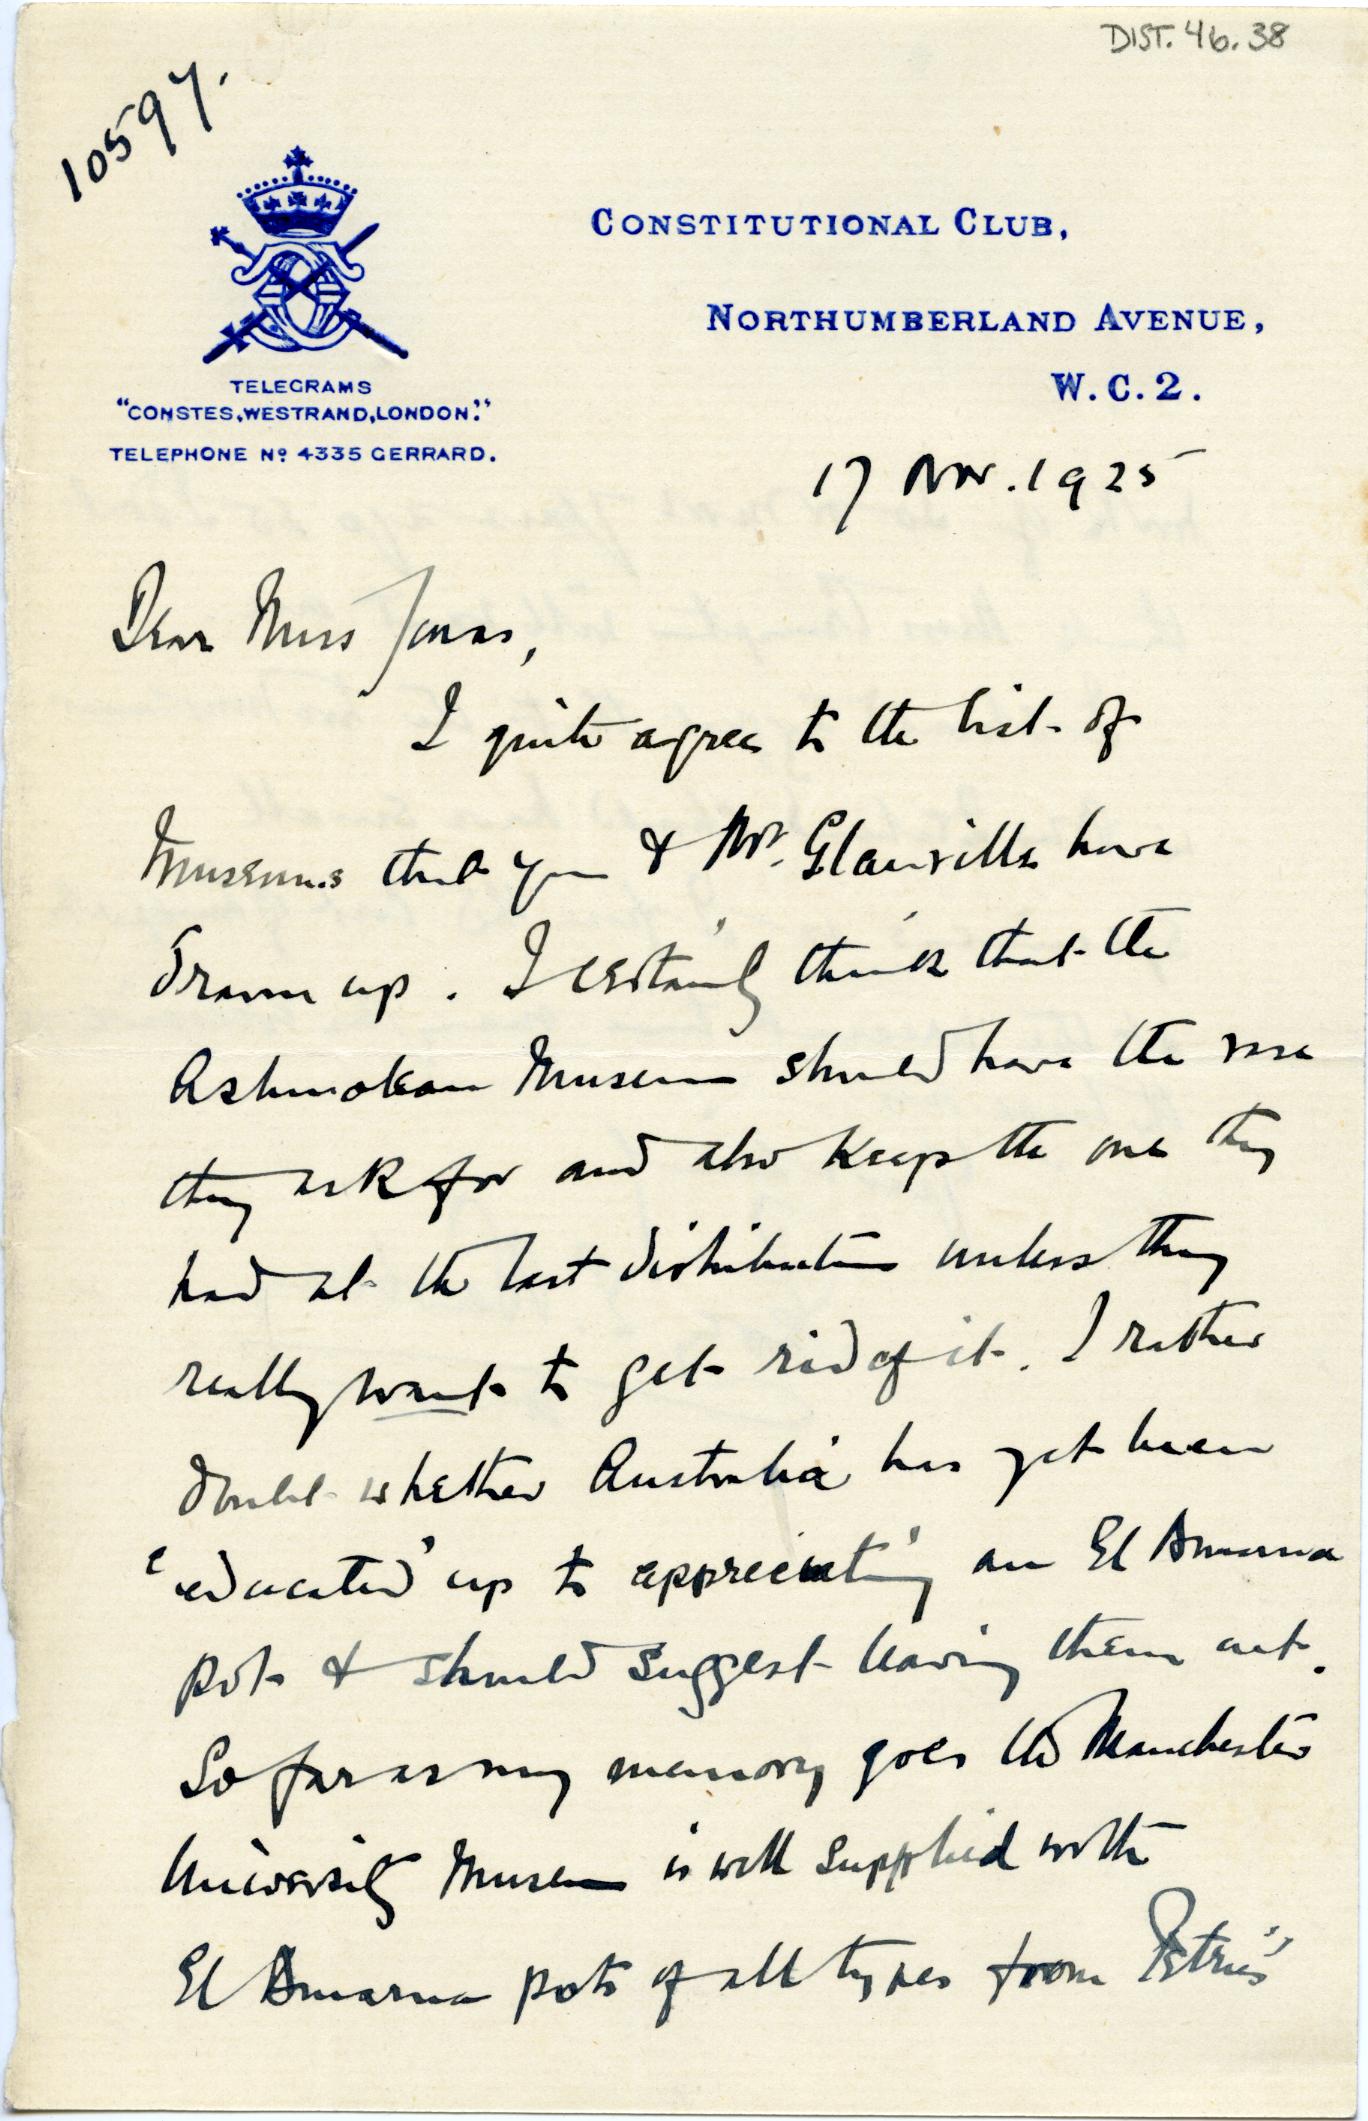 DIST. 46.38
10597.
CONSTITUTIONAL CLUB,
NORTHUMBERLAND AVENUE,
W.C.2.
TELEGRAMS
"CONSTES, WESTRAND, LONDON."
TELEPHONE Nº 4335 GERRARD.
17 Nov. 1925
Dear Miss Jonas,
I quite agree to the list of
Museums that you & Mr. Glanville have
drawn up. I certainly think that the
Ashmolean Museum should have the vase
they ask for and also keep the one they
had at the last distribution unless they
really want to get rid of it. I rather
doubt whether Australia has yet been
'educated' up to appreciating an El Amarna
pot & should suggest leaving them out.
So far as my memory goes the Manchester
University Museum is well supplied with
El Amarna pots of all types from Petrie's